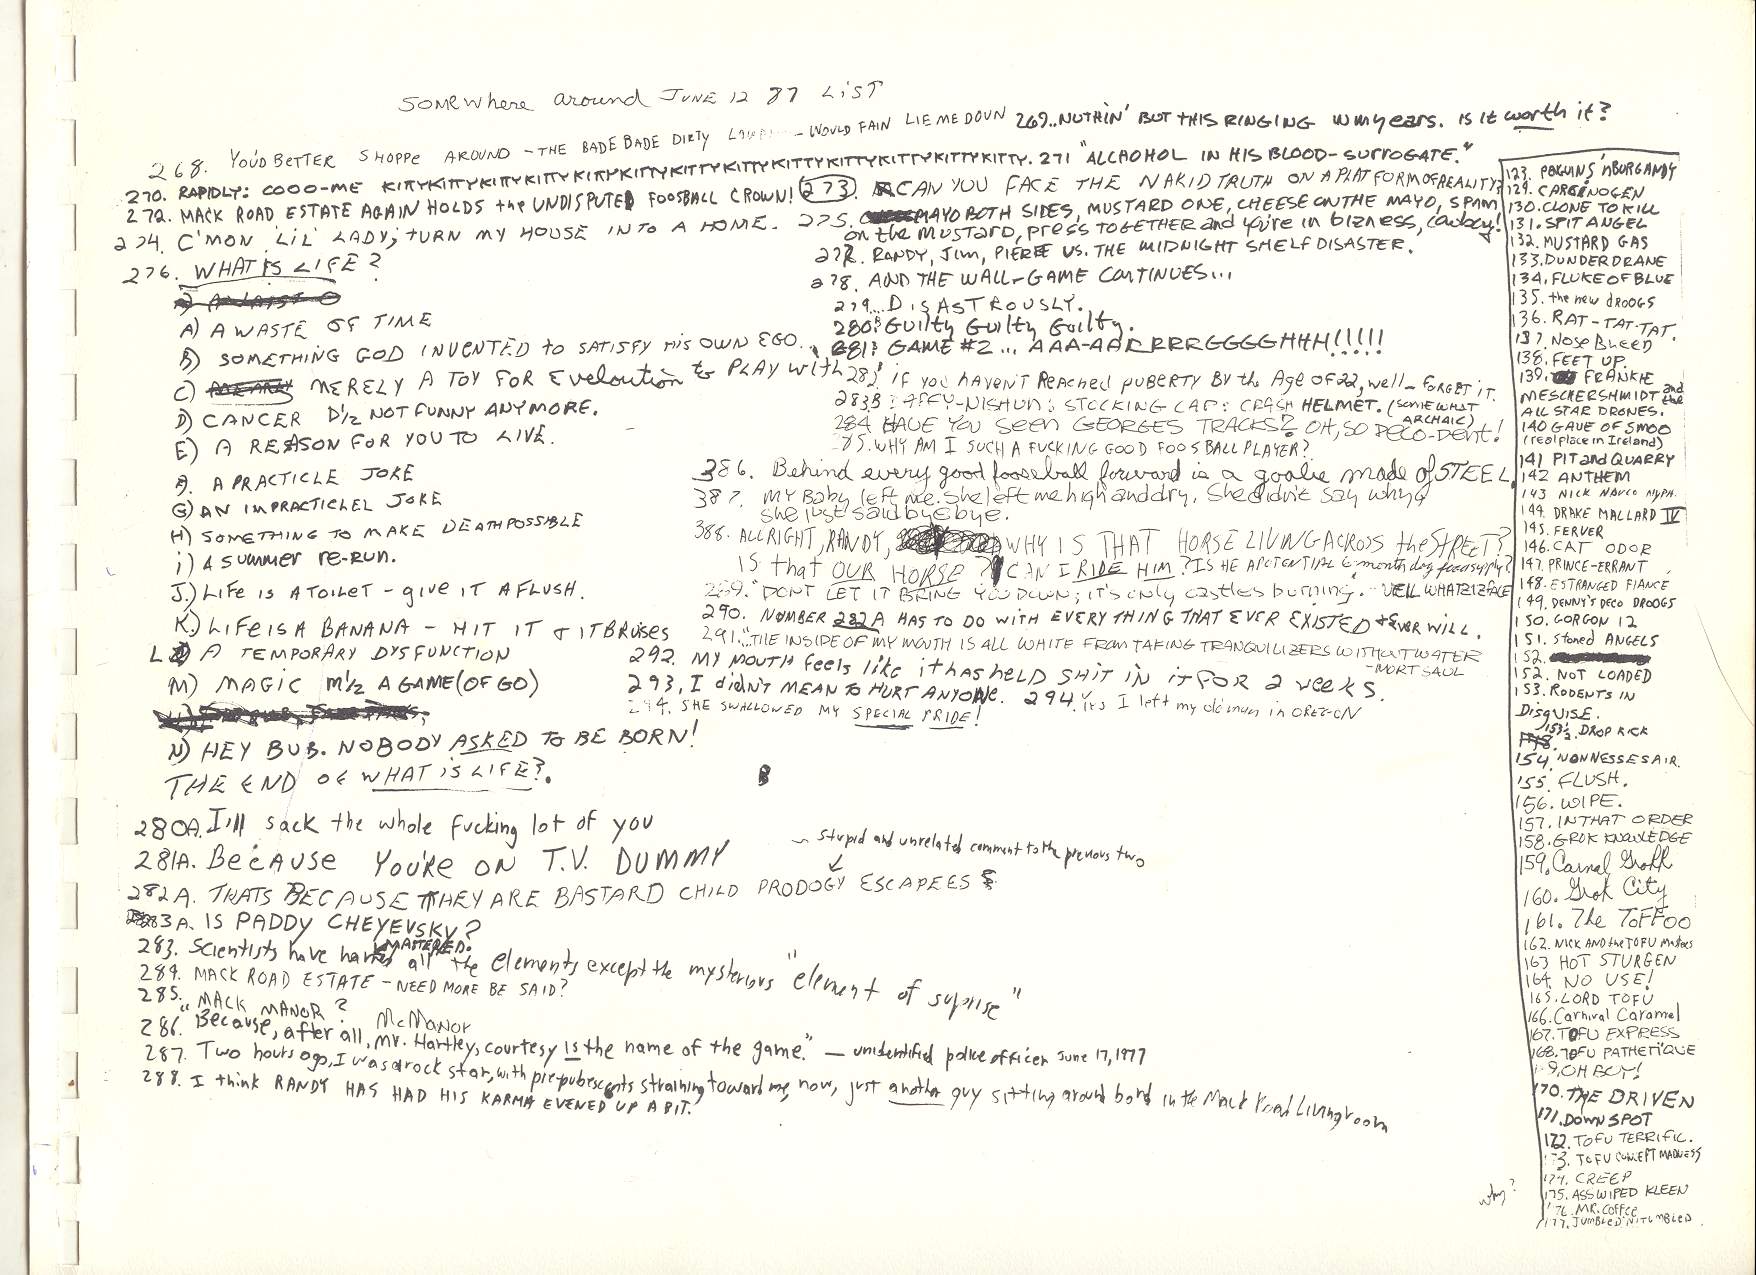 SOMEWhere around JUNE 12 87 LIST
268. YOU'D BETTER SHOPPE AROUND - THE BADE BADE DIRTY - WOULD FAIN LIE ME DOUN 269.. NUTHIN' BUT THIS RINGING IN MY ears. IS IT worth it?
270. RAPIDLY: COOO-ME KITTYKITTYKITTYKITTYKITTYKITTYKITTYKITTYKITTYKITTYKITTYKITTY. 271 "ALCAOHOL IN HIS BLOOD-SURROGATE."
272. MACK ROAD ESTATE AGAIN HOLDS the UNDISPUTED FOOSBALL CROWN! 273. CAN YOU FACE THE NAKID TRUTH ON A PLATFORM OF REALITY?
274. C'MON 'LIL' LADY; TURN MY HOUSE INTO A HOME. 275. MAYO BOTH SIDES, MUSTARD ONE, CHEESE ON THE MAYO, SPAM
on the MUSTARD, press TOGETHER and you're in bizness, cowboy!
276. WHAT IS LIFE?
A) A WASTE OF TIME
B) SOMETHING GOD INVENTED to SATISFY HIS OWN EGO.
C) MERELY A TOY FOR Eveloution to PLAY WITH
D) CANCER D½ NOT FUNNY ANYMORE.
E) A REASON FOR YOU TO LIVE.
F). A PRACTICLE JOKE
G) AN IMPRACTICLEL JOKE
H) SOMETHING TO MAKE DEATH POSSIBLE
i) A summer re-run.
J.) LIFE IS A TOILET - give IT A FLUSH.
K.) LIFE IS A BANANA - HIT IT & IT BRUISES
L A TEMPORARY DYSFUNCTION
M) MAGIC M½ A GAME (OF GO)
N) HEY BUB. NOBODY ASKED TO BE BORN!
THE END OF WHAT IS LIFE?.
277. RANDY, Jim, PIERRE VS. THE MIDNIGHT SHELF DISASTER.
278. AND THE WALL-GAME CONTINUES...
279...DISASTROUSLY.
280. Guilty Guilty Guilty.
281? GAME #2... AAA-AARRRRGGGGHHH!!!!!
282. if you haven't Reached puberty By the Age of 22, well - FORGET IT.
283B: AFFY-NISHUN: STOCKING CAP: CRASH HELMET. (SOMEWHAT
ARCHAIC)
284 HAVE YOU SEEN GEORGES TRACKS? OH, SO DECO-Dent!
285. WHY AM I SUCH A FUCKING GOOD FOOSBALL PLAYER?
386. Behind every good fooseball forward is a goalie made of STEEL.
387. MY Baby left me. She left me high and dry. She didn't say why,
she just said byebye.
388. ALLRIGHT, RANDY, WHY IS THAT HORSE LIVING ACROSS the STREET?
IS that OUR HORSE? CAN I RIDE HIM? IS HE A POTENTIAL 6 month dog food supply?
289. "DON'T LET IT BRING YOU DOWN; it's only castles burning." VEIL WHATZIZFACE
290. NUMBER 282A HAS TO DO WITH EVERYTHING THAT EVER EXISTED & EVER WILL.
291. "THE INSIDE OF MY MOUTH IS ALL WHITE FROM TAKING TRANQUILIZERS WITHOUT WATER
-MORT SAUL
292. MY MOUTH feels like it has HELD SHIT IN IT FOR 2 weeks.
293. I didn't MEAN TO HURT ANYONE. 294. Yes I left my old man in OREGON
294. SHE SWALLOWED MY SPECIAL PRIDE!
280A. I'll sack the whole fucking lot of you
281A. Because YOU'RE ON T.V. DUMMY
~ Stupid and unrelated comment to the previous two
282A. THATS BECAUSE THEY ARE BASTARD CHILD PRODOGY ESCAPEES
283A. IS PADDY CHEYEVSKY?
283. Scientists have MASTERED. all the elements except the mysterious "element of suprise"
284. MACK ROAD ESTATE - NEED MORE BE SAID?
285. MACK MANOR? McMANOR
286. "Because, after all, Mr. Hartley, courtesy is the name of the game." - unidentified police officer June 17, 1977
287. Two hours ago, I was a rock star, with pre-pubescents straining toward me, now, just another guy sitting around bord in the Mack Road Livingroom
288. I think RANDY HAS HAD HIS KARMA EVENED UP A BIT.
why?
123. PENGUINS 'n BURGANDY
129. CARCINOGEN
130. CLONE TO KILL
131. SPIT ANGEL
132. MUSTARD GAS
133. DUNDERDRANE
134. FLUKE OF BLUE
135. the new drooGS
136. RAT-TAT-TAT.
137. Nose Bleed
138. FEET UP.
139. FRANKIE
MESCHERSHMIDT and the
ALL STAR DRONES.
140 CAVE OF SMOO
(real place in Ireland)
141 PIT and QUARRY
142 ANTHEM
143 NICK
144. DRAKE MALLARD IV
145. FERVER
146. CAT ODOR
147. PRINCE-ERRANT
148. ESTRANGED FIANCE
149. DENNY'S DECO DROOGS
150. GORGON 12
151. Stoned ANGELS
152.
152. NOT LOADED
153. RODENTS IN
DISGUISE.
153½. DROP KICK
154. NONNESSESAIR.
155. FLUSH.
156. WIPE.
157. IN THAT ORDER
158. GROK KNOWLEDGE
159. Carnal Grokk
160. Grok City
161. The TOFFOO
162. NICK AND the TOFU Mattoes
163 HOT STURGEN
164. NO USE!
165. LORD TOFU
166. Carnival Caramel
167. TOFU EXPRESS
168. TOFU PATHETIQUE
169. OH BOY!
170. THE DRIVEN
171. DOWN SPOT
172. TOFU TERRIFIC.
173. TOFU CONCEPT MADNESS
174. CREEP
175. ASSWIPED KLEEN
176. MR. COFFEE
177. JUMBLED 'N TUMBLED